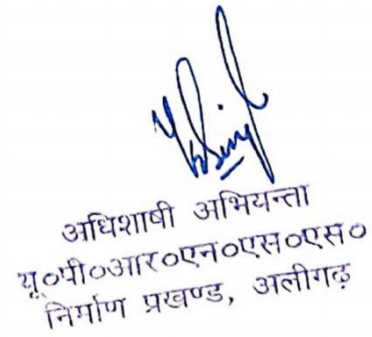 अधिशाषी अभियन्ता
यू०पी०आर०एन०एस०एस०
निर्माण प्रखण्ड, अलीगढ़